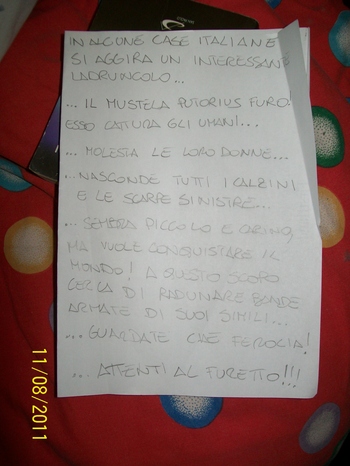 IN ALCUNE CASE ITALIANE
SI AGGIRA UN INTERESSANTE
LADRUNCOLO...
... IL MUSTELA PUTORIUS FURO!
ESSO CATTURA GLI UMANI...
... MOLESTA LE LORO DONNE...
...NASCONDE TUTTI I CALZINI
E LE SCARPE SINISTRE...
... SEMBRA PICCOLO E CARINO,
MA VUOLE CONQUISTARE IL
MONDO! A QUESTO SCOPO
CERCA DI RADUNARE BANDE
ARMATE DI SUOI SIMILI...
... GUARDATE CHE FEROCIA!
... ATTENTI AL FURETTO!!!
11/08/2011